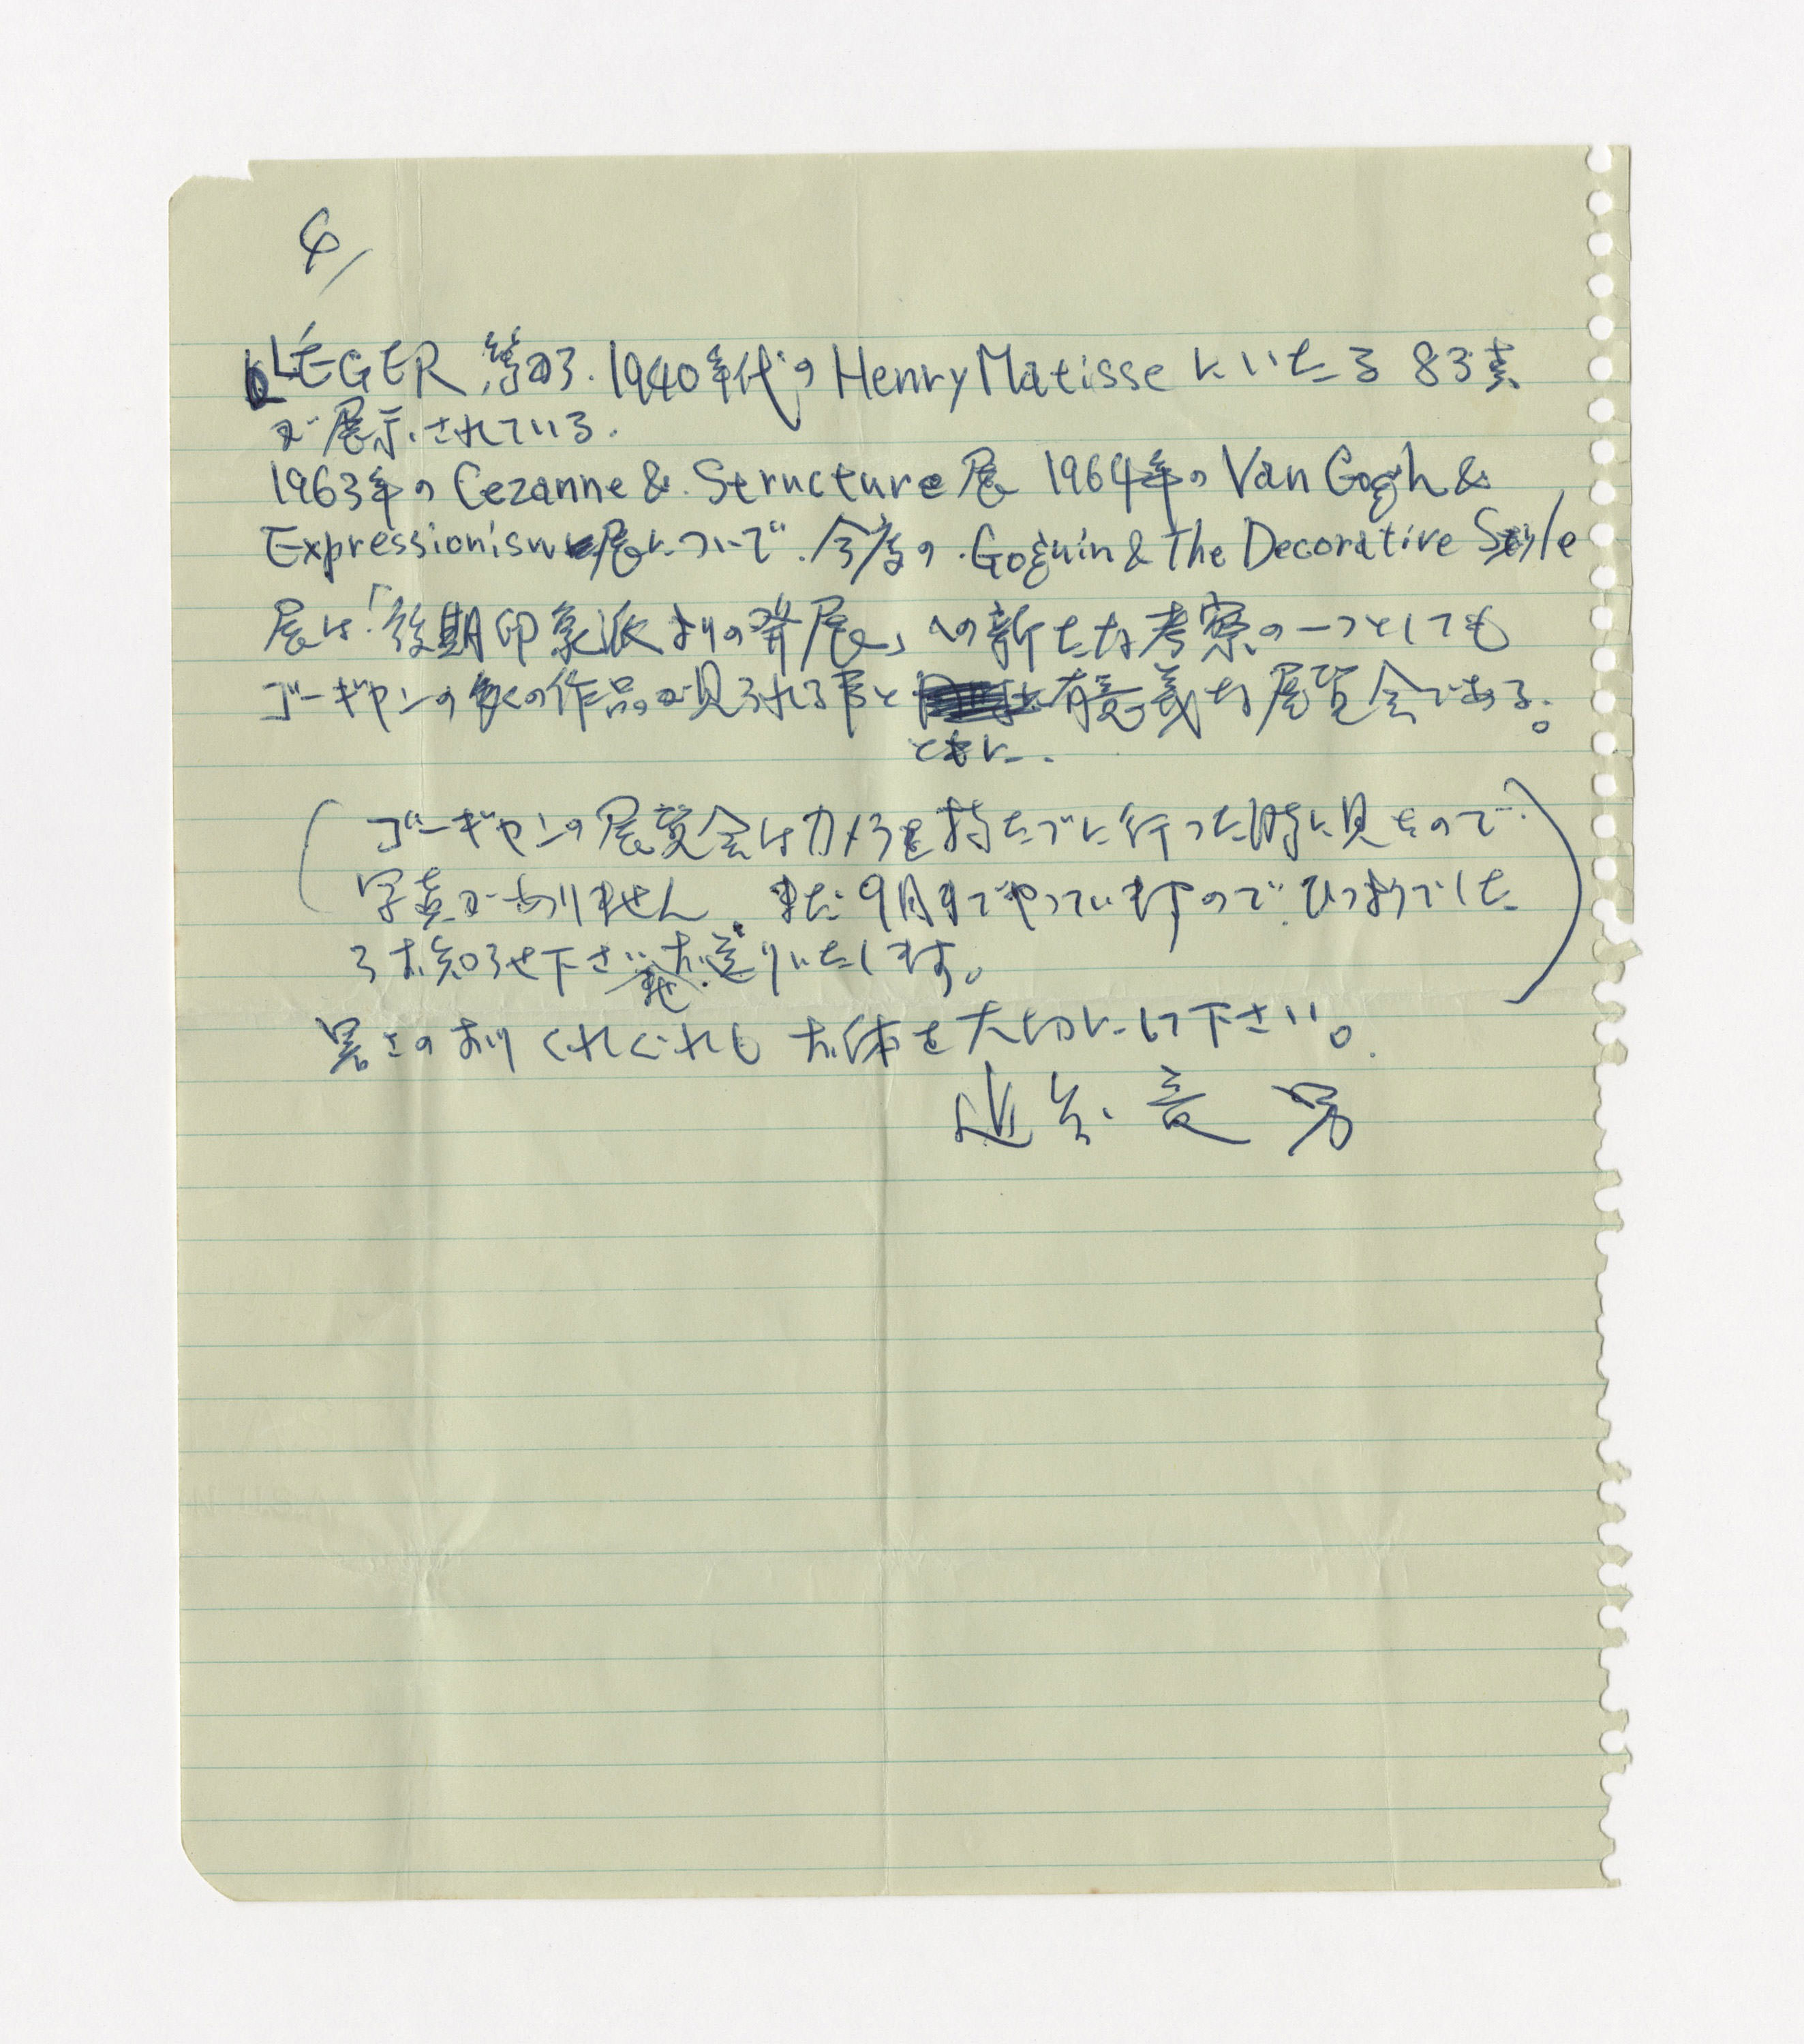 4/
LÉGER 等から.1940年代のHenry Matisse にいたる 83点
が展示されている.
1963年の Cezanne &. Structure展 1964年の Van Gogh &
Expressionism展についで.今度の.Goguin & The Decorative Style
展は「後期印象派よりの発展」への新たな考察の一つとしても
ゴーギャンの多くの作品が見られる事と 有意義な展覧会である。
ともに.
ゴーギャンの展覧会はカメラを持たずに行った時に見たもので
写真がありません。まだ9月までやっていますので.ひつようでした
らお知らせ下さいませ.お送りいたします。
暑さのおりくれぐれもお体を大切にして下さい。
近 男